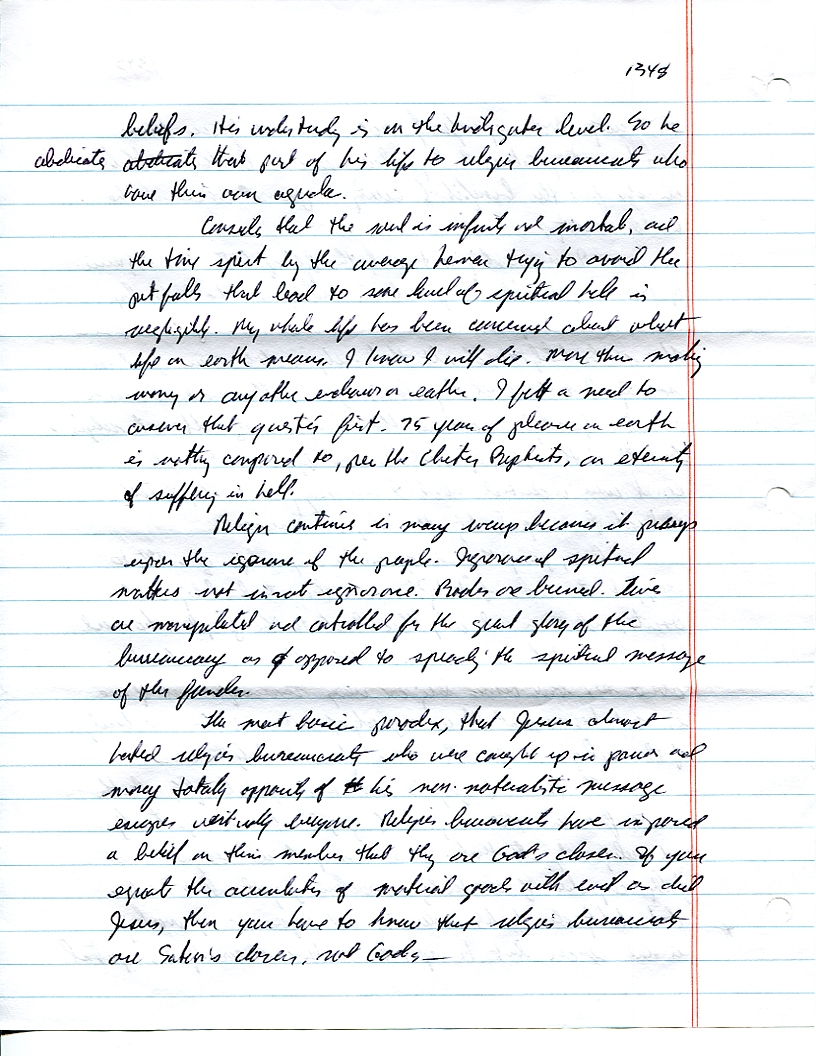 1348
beliefs. His understudy is on the kindergarten level. So he
abdicates abdicates that part of his life to religious bureaucrats who
have their own agenda.
Consider that the soul is infinite and immortal, and
the time spent by the average human trying to avoid the
pitfalls that lead to some level of spiritual hell is
negligible. My whole life has been concerned about what
life on earth means. I know I will die. More than making
money or any other endeavor on earth. I felt a need to
answer that question first. 75 years of pleasure on earth
is nothing compared to, per the Prophets, an eternity
of suffering in hell.
Religion continues in many ways because it preys
upon the ignorance of the people. Ignorance of spiritual
matters not innate ignorance. Books are burned. Lives
are manipulated and controlled for the great glory of the
bureaucracy as opposed to spreading the spiritual message
of the founder.
The most basic paradox, that Jesus almost
hated religious bureaucrats who were caught up in power and
money totally opposite of his non-materialistic message
escapes virtually everyone. Religious bureaucrats have imposed
a belief on their member that they are God's chosen. If you
equate the accumulation of material goods with evil as did
Jesus, then you have to know that religious bureaucrats
are Satan's chosen, not Gods—